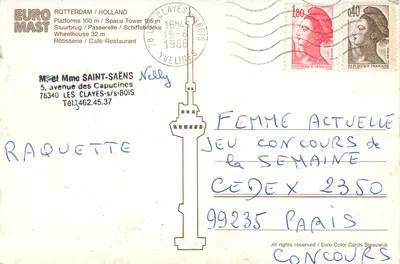 EURO
MAST
ROTTERDAM / HOLLAND
Platforms 100 m / Space Tower 185 m
Stuurbrug / Passerelle / Schiffsbrücke
Wheelhouse 32 m
Rôtisserie / Café-Restaurant
78 LES CLAYES-S/S-BOIS
1988
YVELINES
1,80
0,40
M. et Mme SAINT-SAËNS
Nelly
5, avenue des Capucines
78340 LES CLAYES-s/s-BOIS
Tél. 462.45.37
RAQUETTE
FEMME ACTUELLE
JEU CONCOURS de
la SEMAINE
CEDEX 2350
99235 PARIS
CONCOURS
All rights reserved / Euro Color Cards